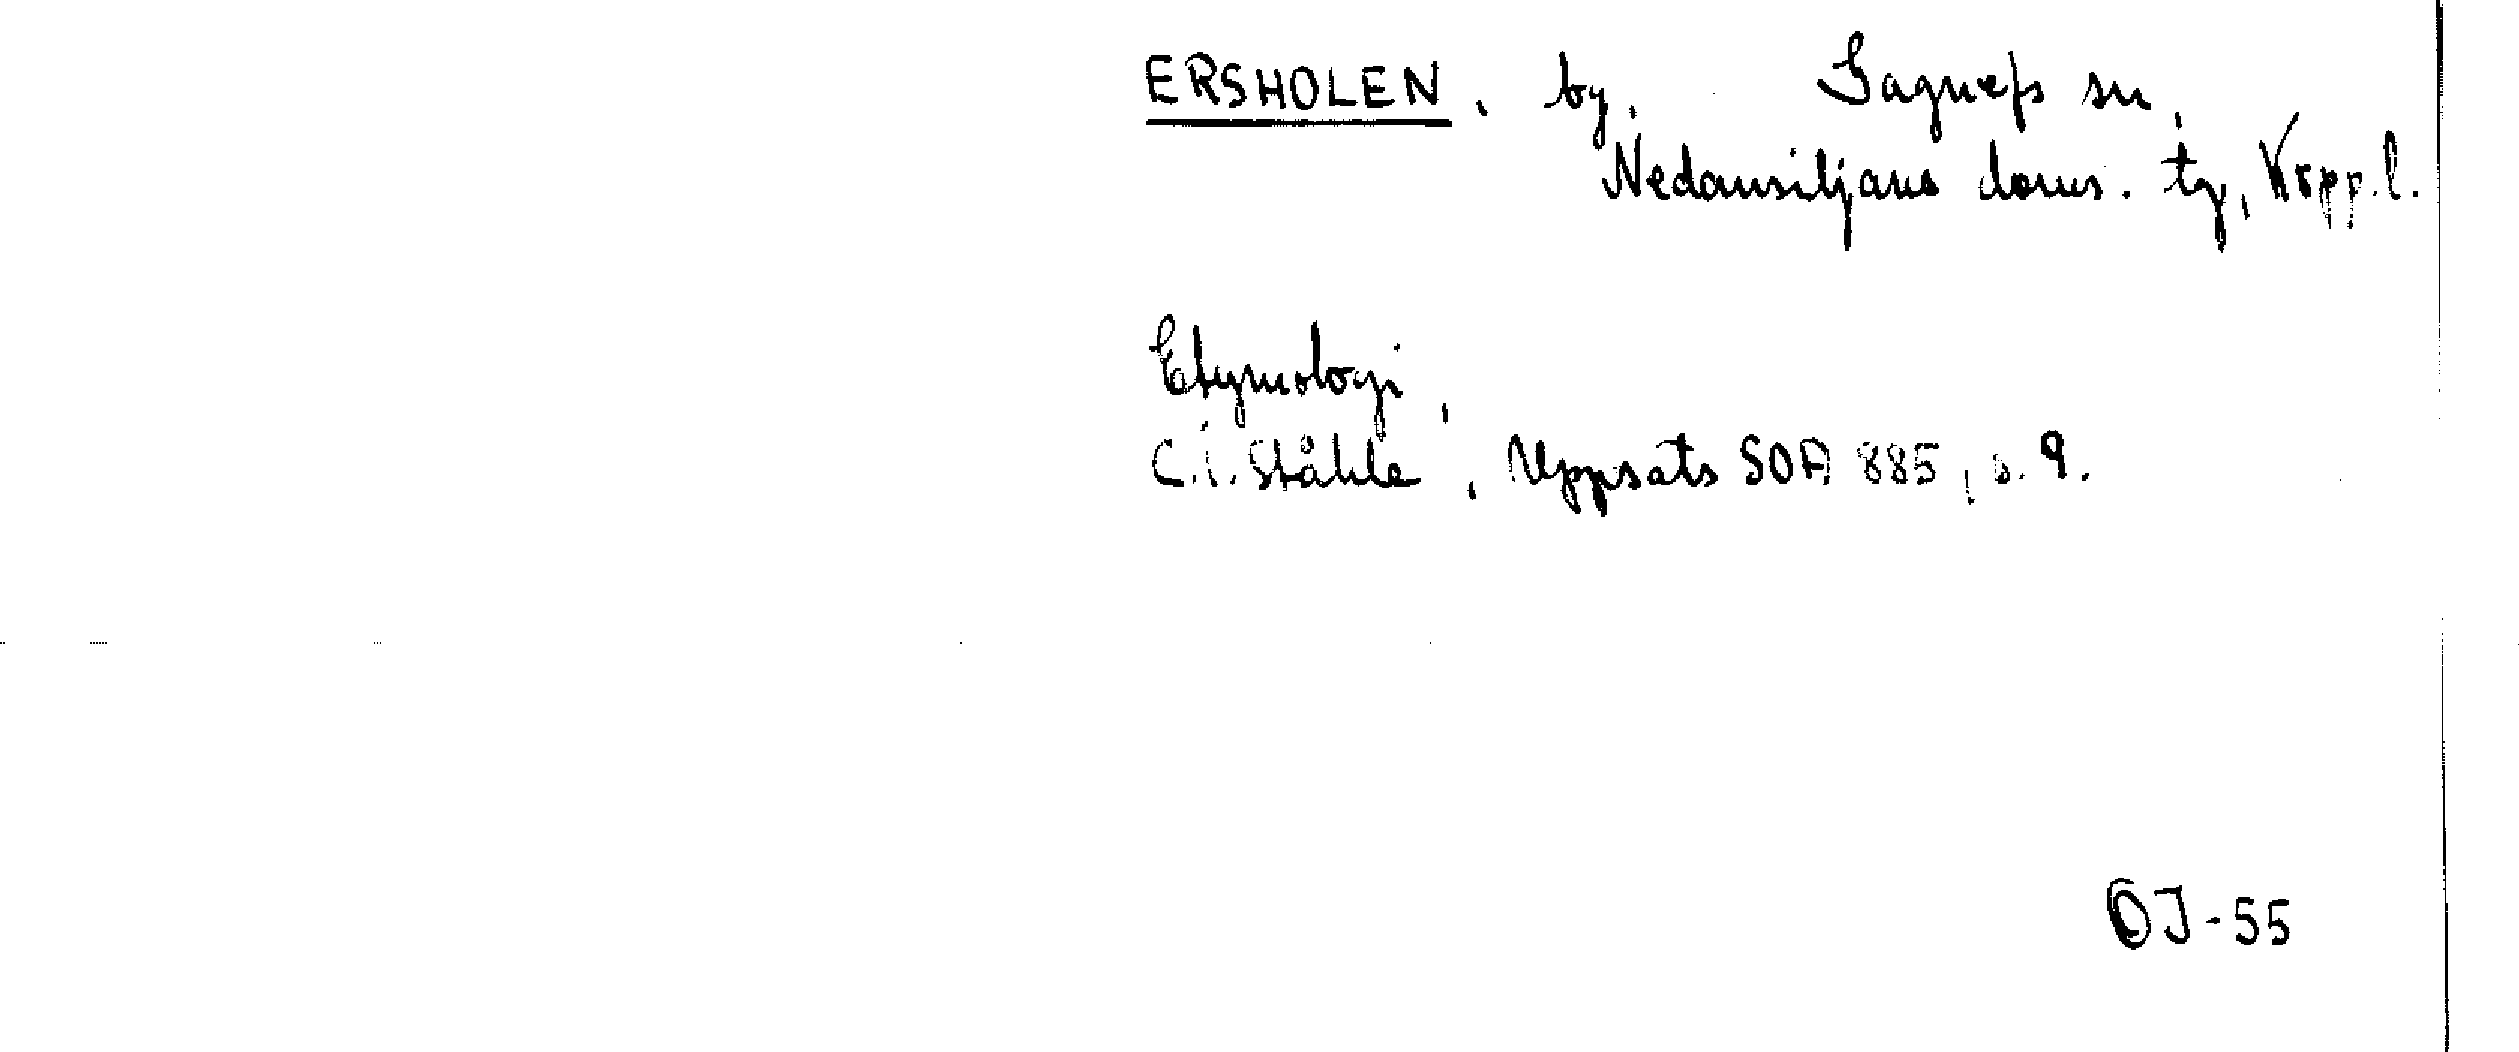 ERSHOLEN, by, Gagnefs sn,
Nedansiljans doms. tg, Kopp. l.
Etymologi,
C.I. Ståhle, Uppsats SOA 885, s. 9.
OJ-55